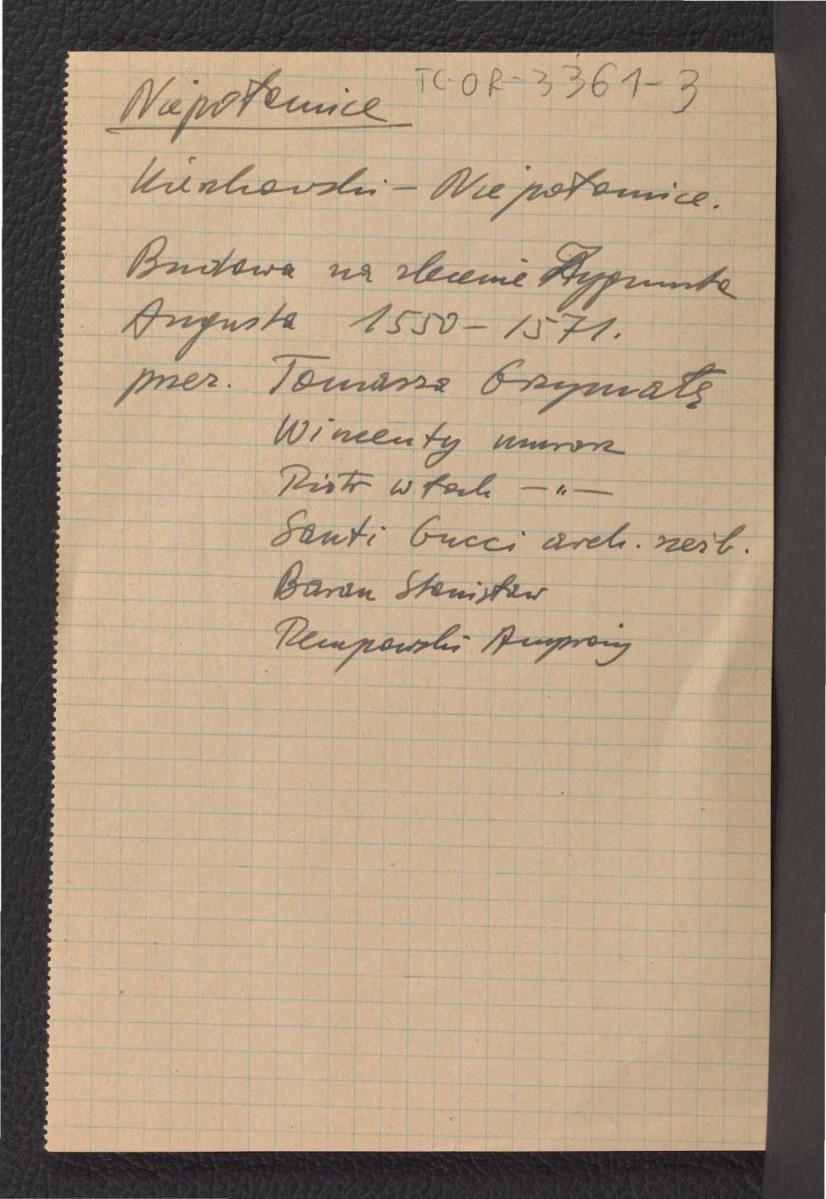 TC-OR-3361-3
Niepołomice
– Niepołomice.
Budowa na zlecenie Zygmunta
Augusta 1550 – 1571.
przez. Tomasza Grzymałę
Wincenty murarz
Piotr włoch – " –
Santi Gucci arch. rzeźb.
Baran Stanisław
Ambroży